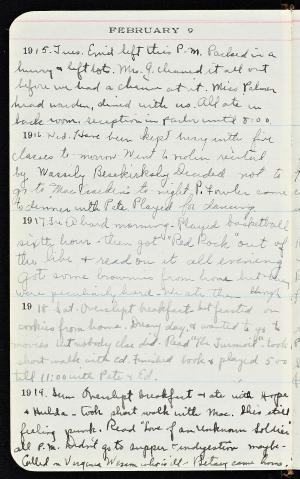 FEBRUARY 9
1915. Tues. Enid left this P.M. Packed in a
hurry & left lots. Mrs. G. cleaned it all out
before we had a chance at it. Miss Palmer
head warden, dined with us. All ate in
back room. reception in parlor until 8:00
1916 Wed. Have been kept busy with five
classes to-morrow. Went to violin recital
by Wassily Besekirsky. Decided not to
go to MacFadden's to-night. P. Fowler came
to dinner with Pete. Played for dancing
1917 hard morning. Played basketball
sixth hour. then got "Red Rock" out of
the libe & read on it all evening
Got some brownies from home but they
were peculiarly hard. We ate them
1918 Sat. Overslept breakfast but feasted on
cookies from home. Dreary day, & wanted to go to
movies but nobody else did. Read "The Turmoil". took
short walk with Ed. Finished book & played 500
till 11:00 with Pete & Ed.
1919. Sun Overslept breakfast & ate with Hope
& Hulda. took short walk with Mac. She's still
feeling punk. Read "Love of an Unknown Soldier"
all P.M. Didn't go to supper - indigestion maybe.
Called on Virginia who is ill. Betsey came home.